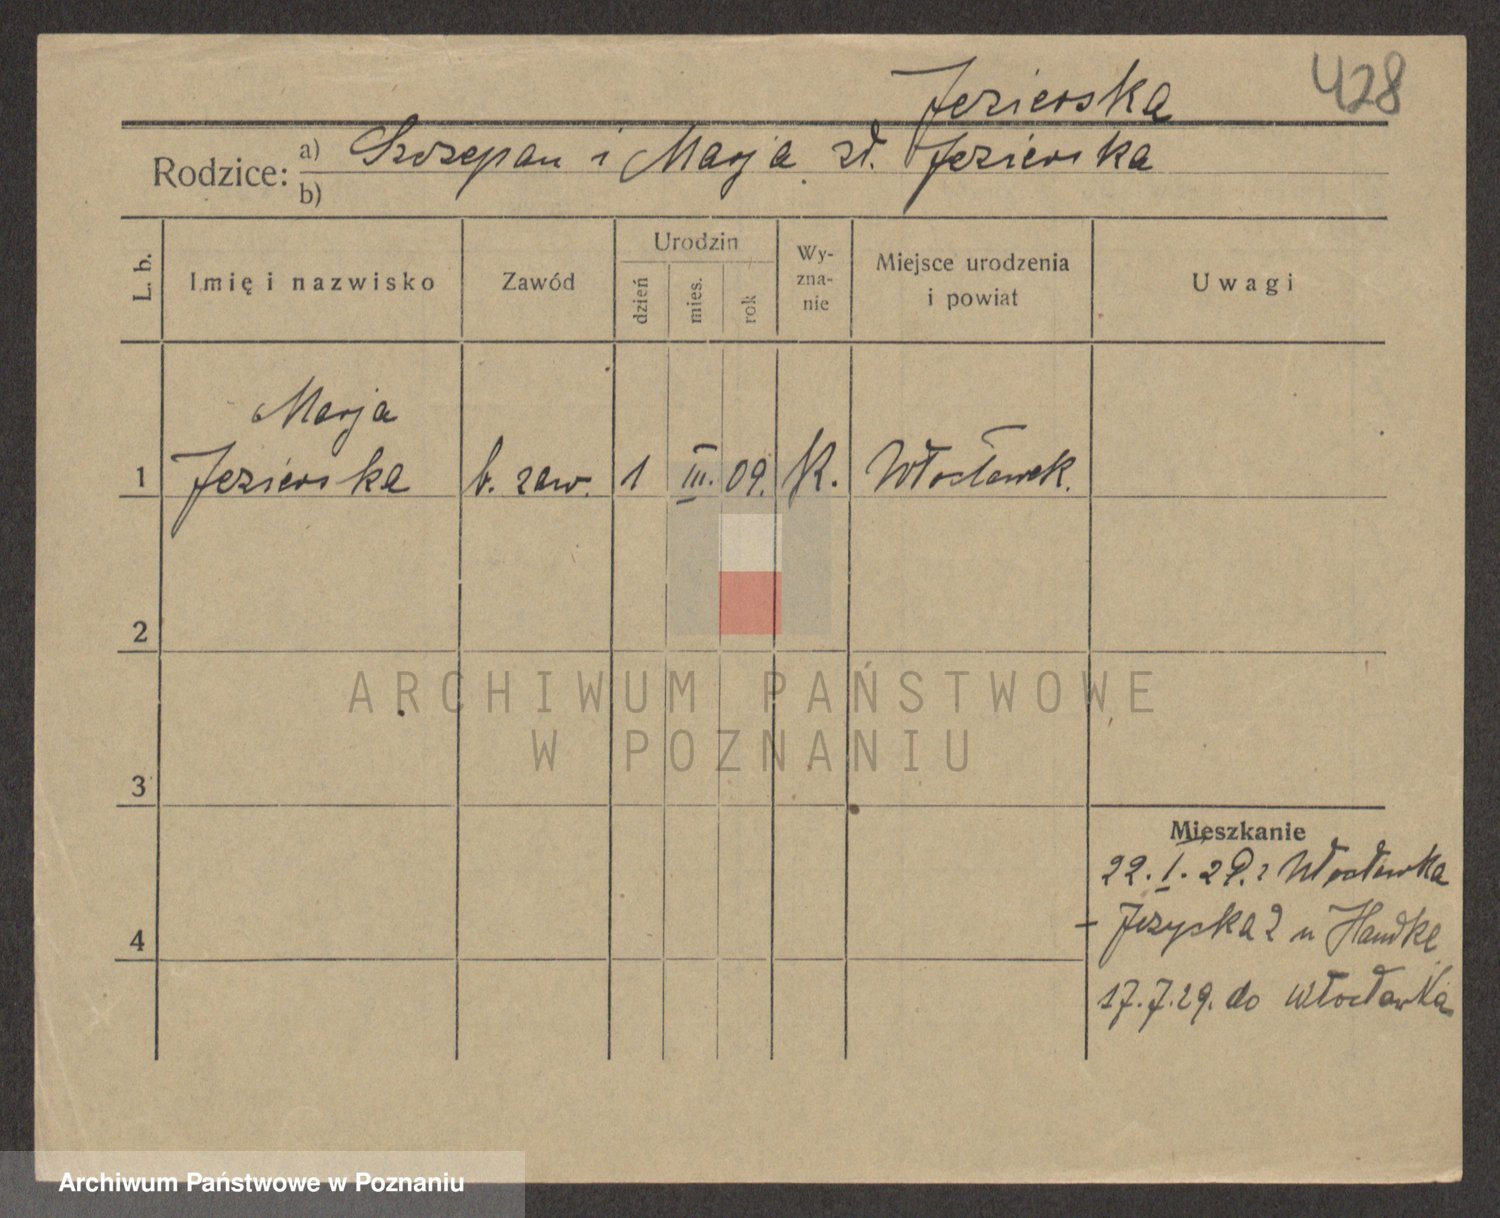 Jezierska 428
Rodzice: a) Szczepan i Marja zd. Jezierska
b)
L. b. Imię i nazwisko Zawód Urodzin dzień mies. rok Wy-zna-nie Miejsce urodzenia i powiat Uwagi
Marja
1 Jezierska b. zaw. 1 III. 09. K. Włocławek.
2
ARCHIWUM PAŃSTWOWE
W POZNANIU
3
Mieszkanie
22. I. 29. z Włocławka
4 Jezycka 2 u Handke
17.7.29. do Włocławka
Archiwum Państwowe w Poznaniu